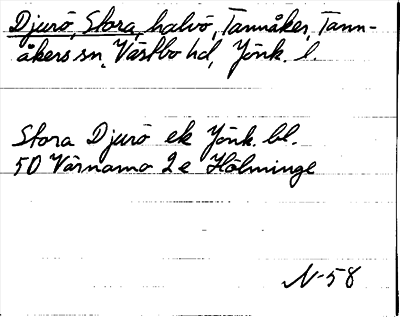 Djurö, Stora, halvö, Tannåker, Tann-
åkers sn, Västbo hd, Jönk. l.
Stora Djurö ek Jönk. bl.
5D Värnamo 2e Hölminge
N-58